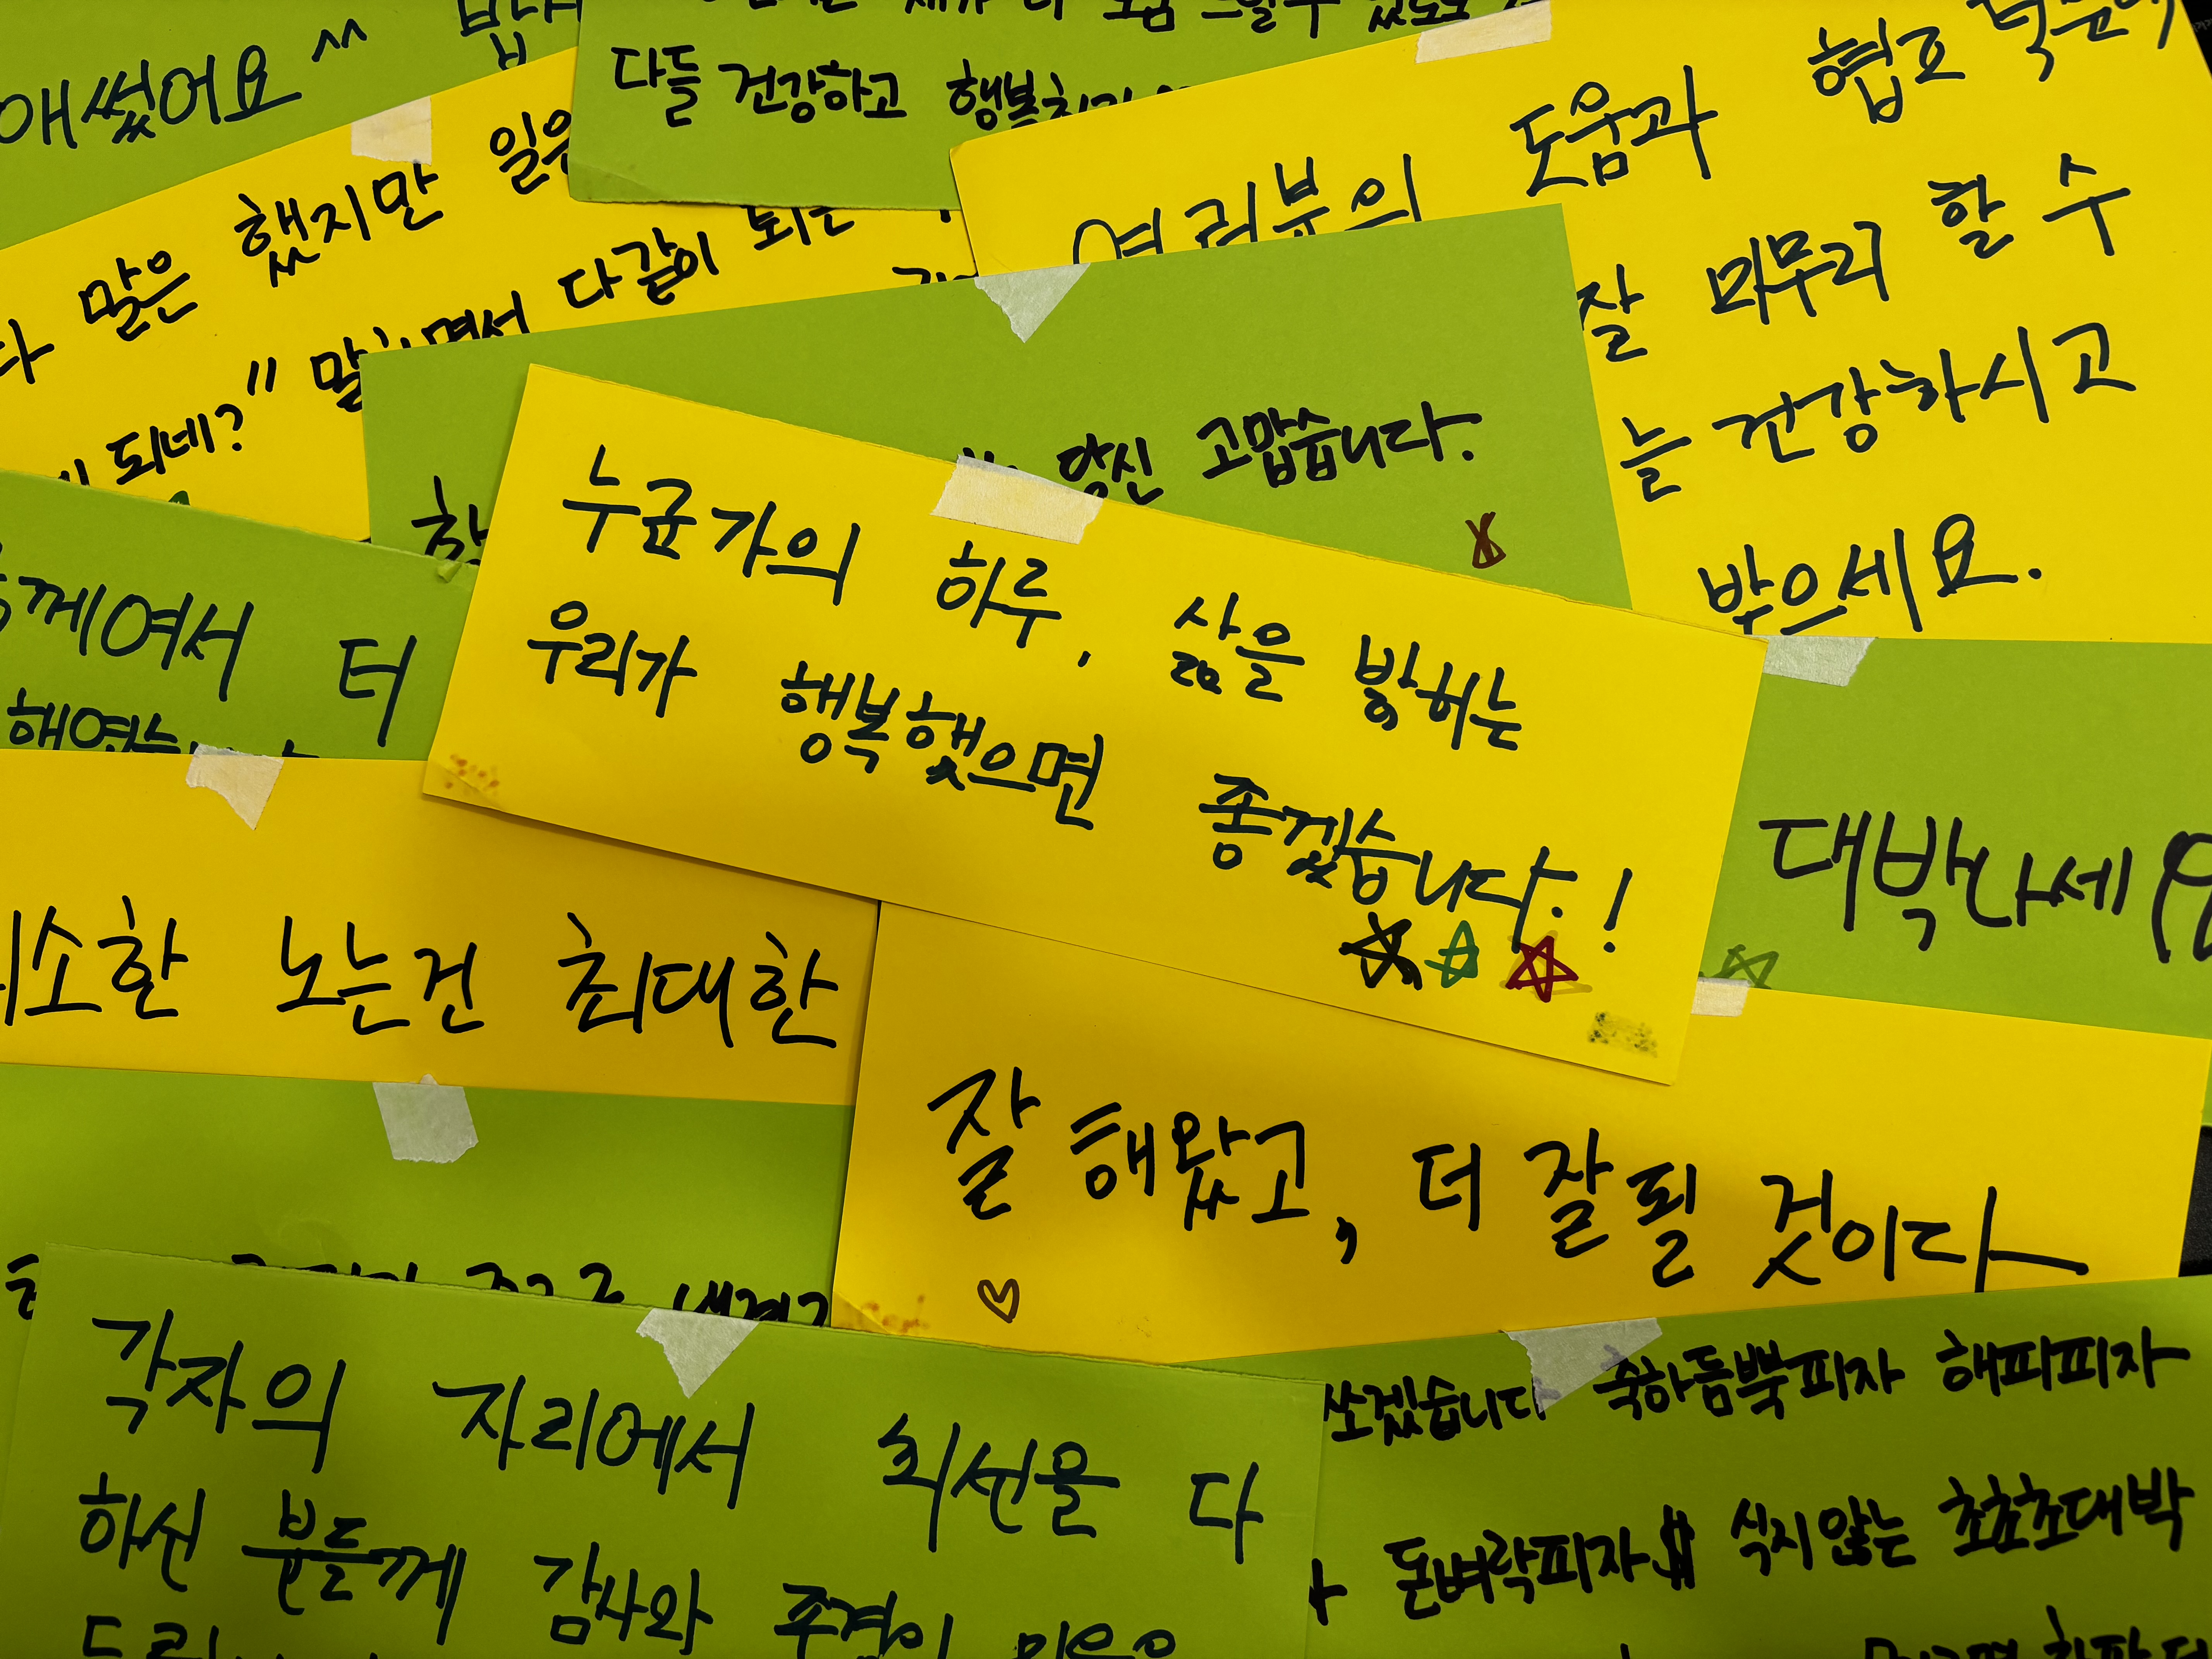 애썼어요 ^^
다들 건강하고
말은 했지만
다같이
되네?"
여러분의 도움과 협조
잘 마무리 할 수
늘 건강하시고
받으세요.
당신 고맙습니다.
누군가의 하루, 삶을 밝히는
우리가 행복했으면 좋겠습니다.!
께여서 더
대박나세요
노는건 최대한
잘 해왔고, 더 잘될 것이다
각자의 자리에서 최선을 다
하신 분들께 감사와 존경의
쏘겠습니다 축하듬뿍피자 해피피자
돈벼락피자$ 식지않는 초초초대박